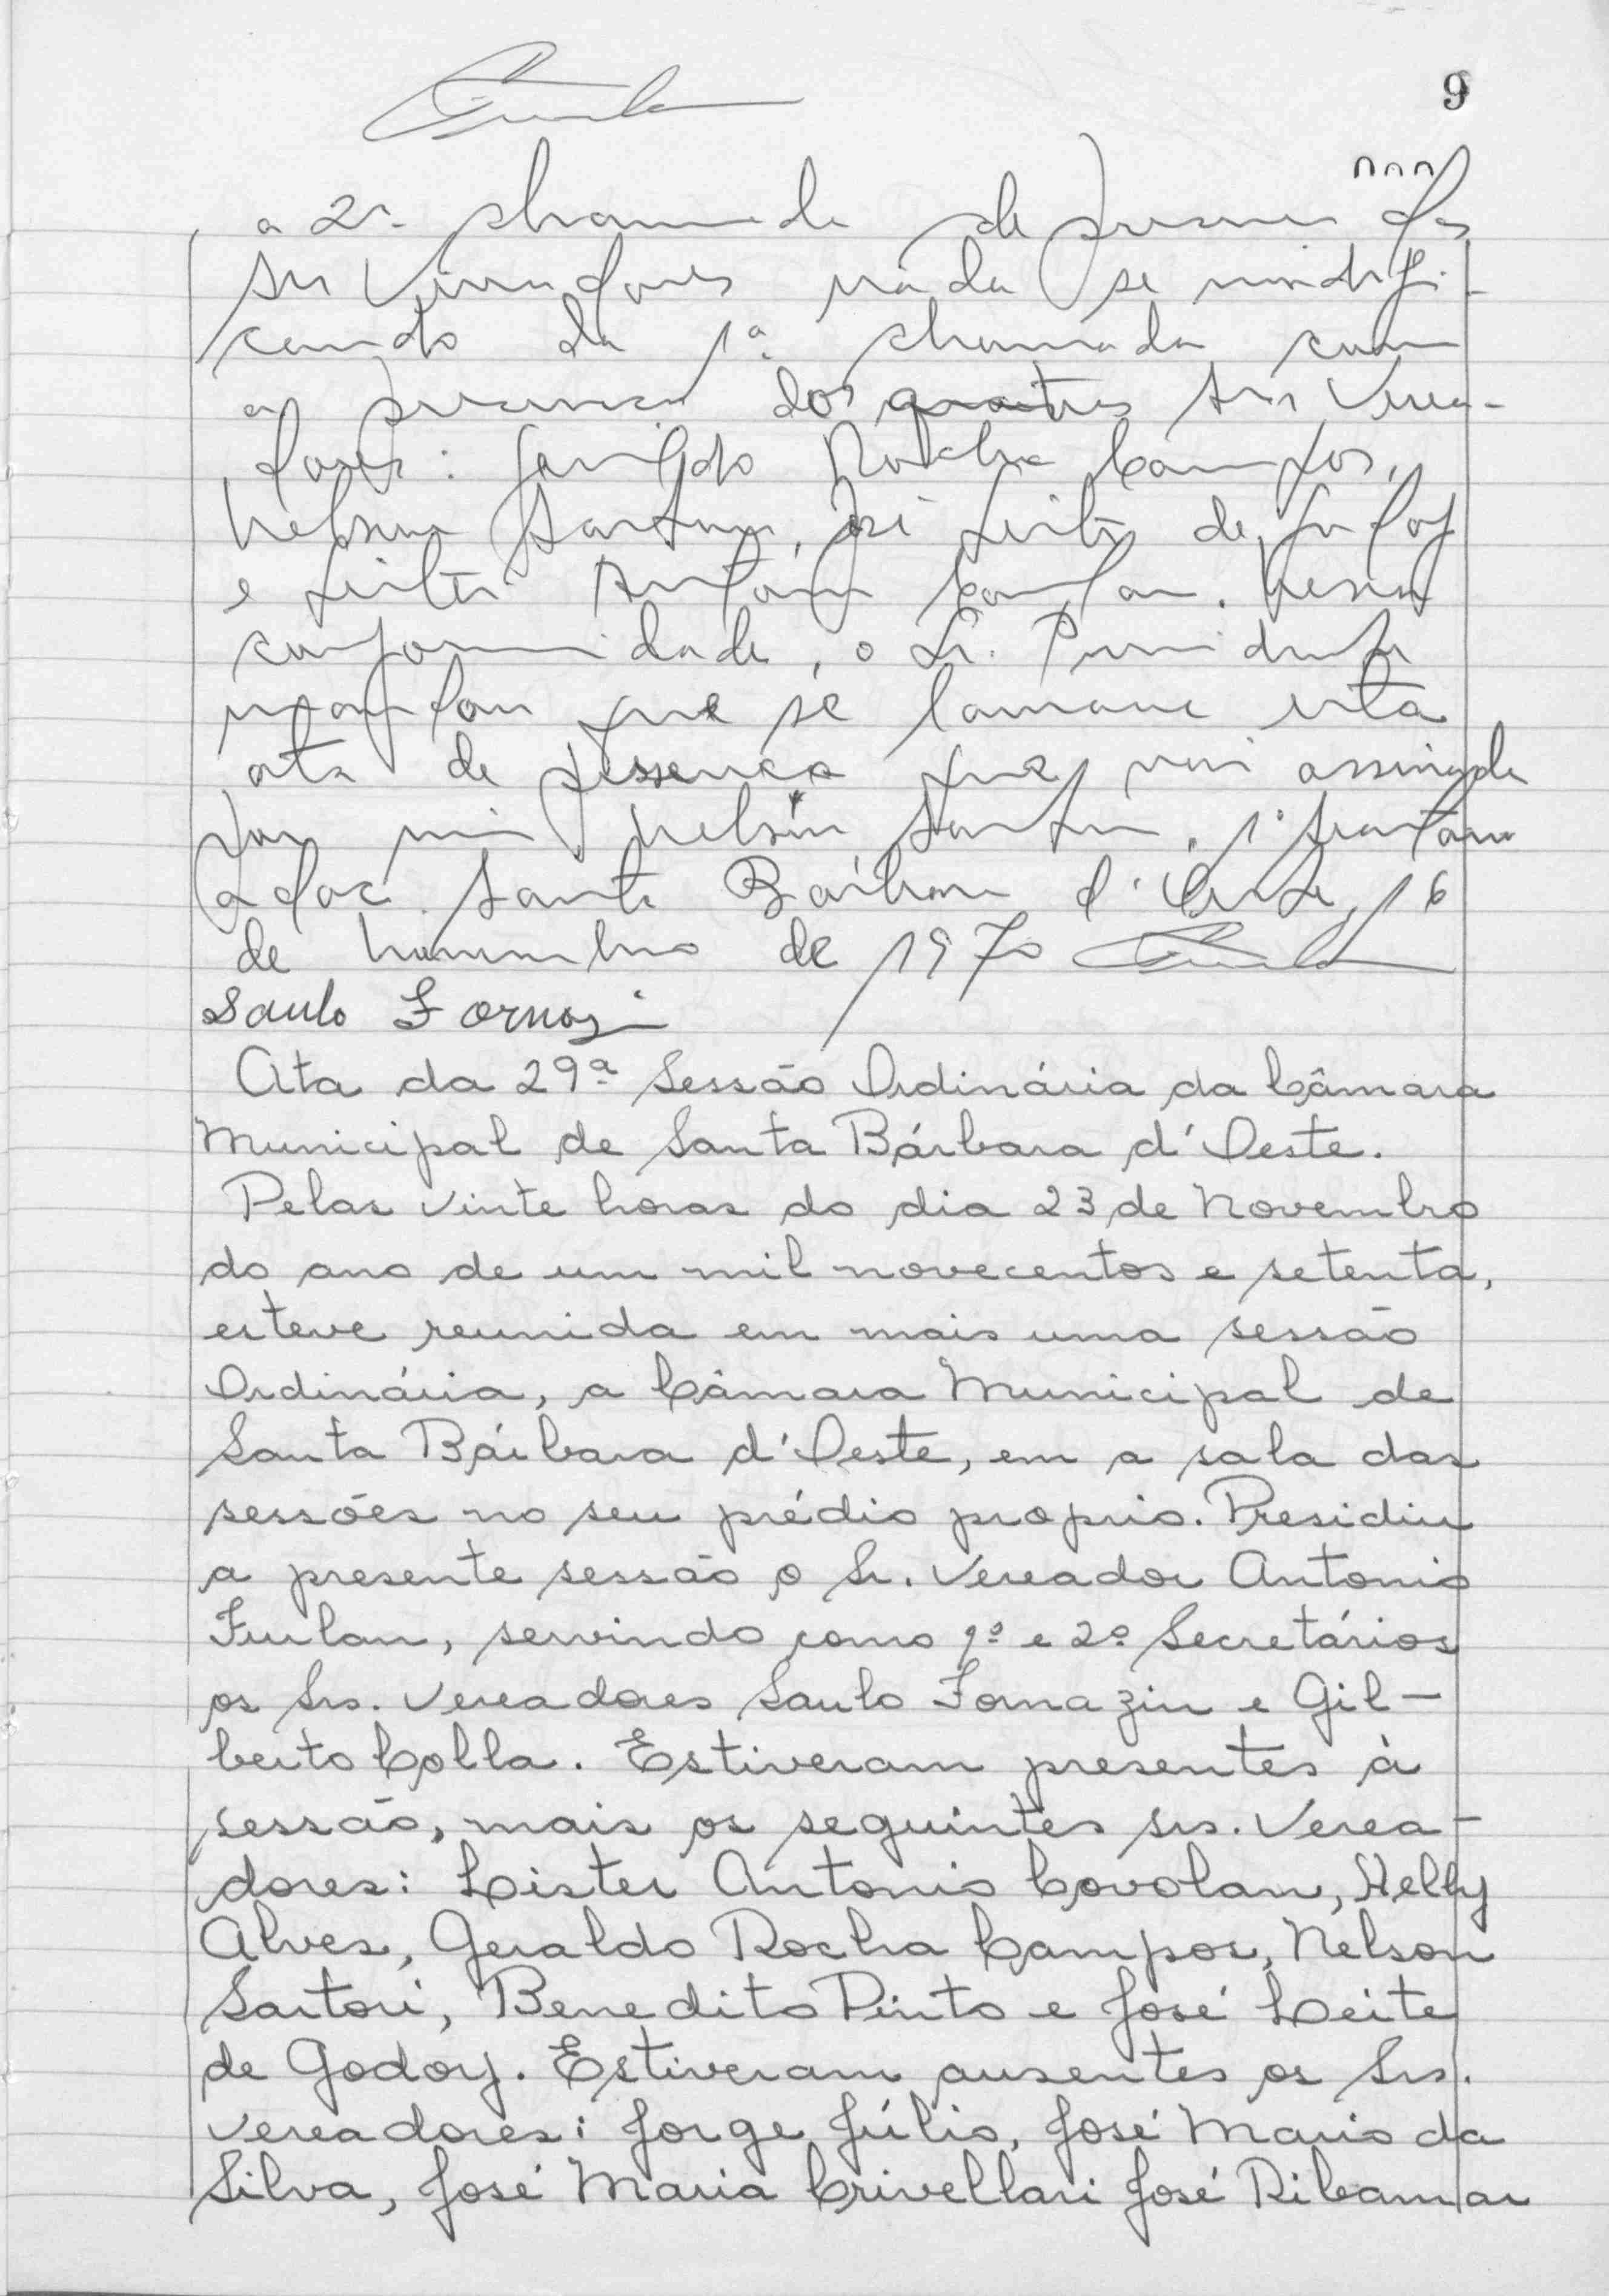 9
a 2ª chamada de presença dos
Srs Vereadores nada se modifi-
cando da 1ª chamada com
a presença dos quatro Srs Verea-
dores: Geraldo Rocha Campos,
Nelson Sartori, José Leite de Godoy
e Lister Antonio Covolan. Nessa
conformidade, o Sr. Presidente
mandou que se lavrasse esta
ata de presença que vai assinada
por mim Nelson Sartori, 1º Secretário
ad oc. Santa Bárbara d'Oeste, 16
de novembro de 1970
Saulo Fornazin
Ata da 29ª Sessão Ordinária da Câmara
Municipal de Santa Bárbara d'Oeste.
Pelas vinte horas do dia 23 de Novembro
do ano de um mil novecentos e setenta,
esteve reunida em mais uma sessão
Ordinária, a Câmara Municipal de
Santa Bárbara d'Oeste, em a sala das
sessões no seu prédio proprio. Presidiu
a presente sessão o Sr. Vereador Antonio
Furlan, servindo como 1º e 2º Secretários
os Srs. Vereadores Saulo Fornazin e Gil-
berto Colla. Estiveram presentes à
sessão, mais os seguintes srs. Verea-
dores: Lister Antonio Covolan, Helly
Alves, Geraldo Rocha Campos, Nelson
Sartori, Benedito Pinto e José Leite
de Godoy. Estiveram ausentes os Srs.
Vereadores: Jorge Júlio, José Mario da
Silva, José Maria Crivellari José Ribamar